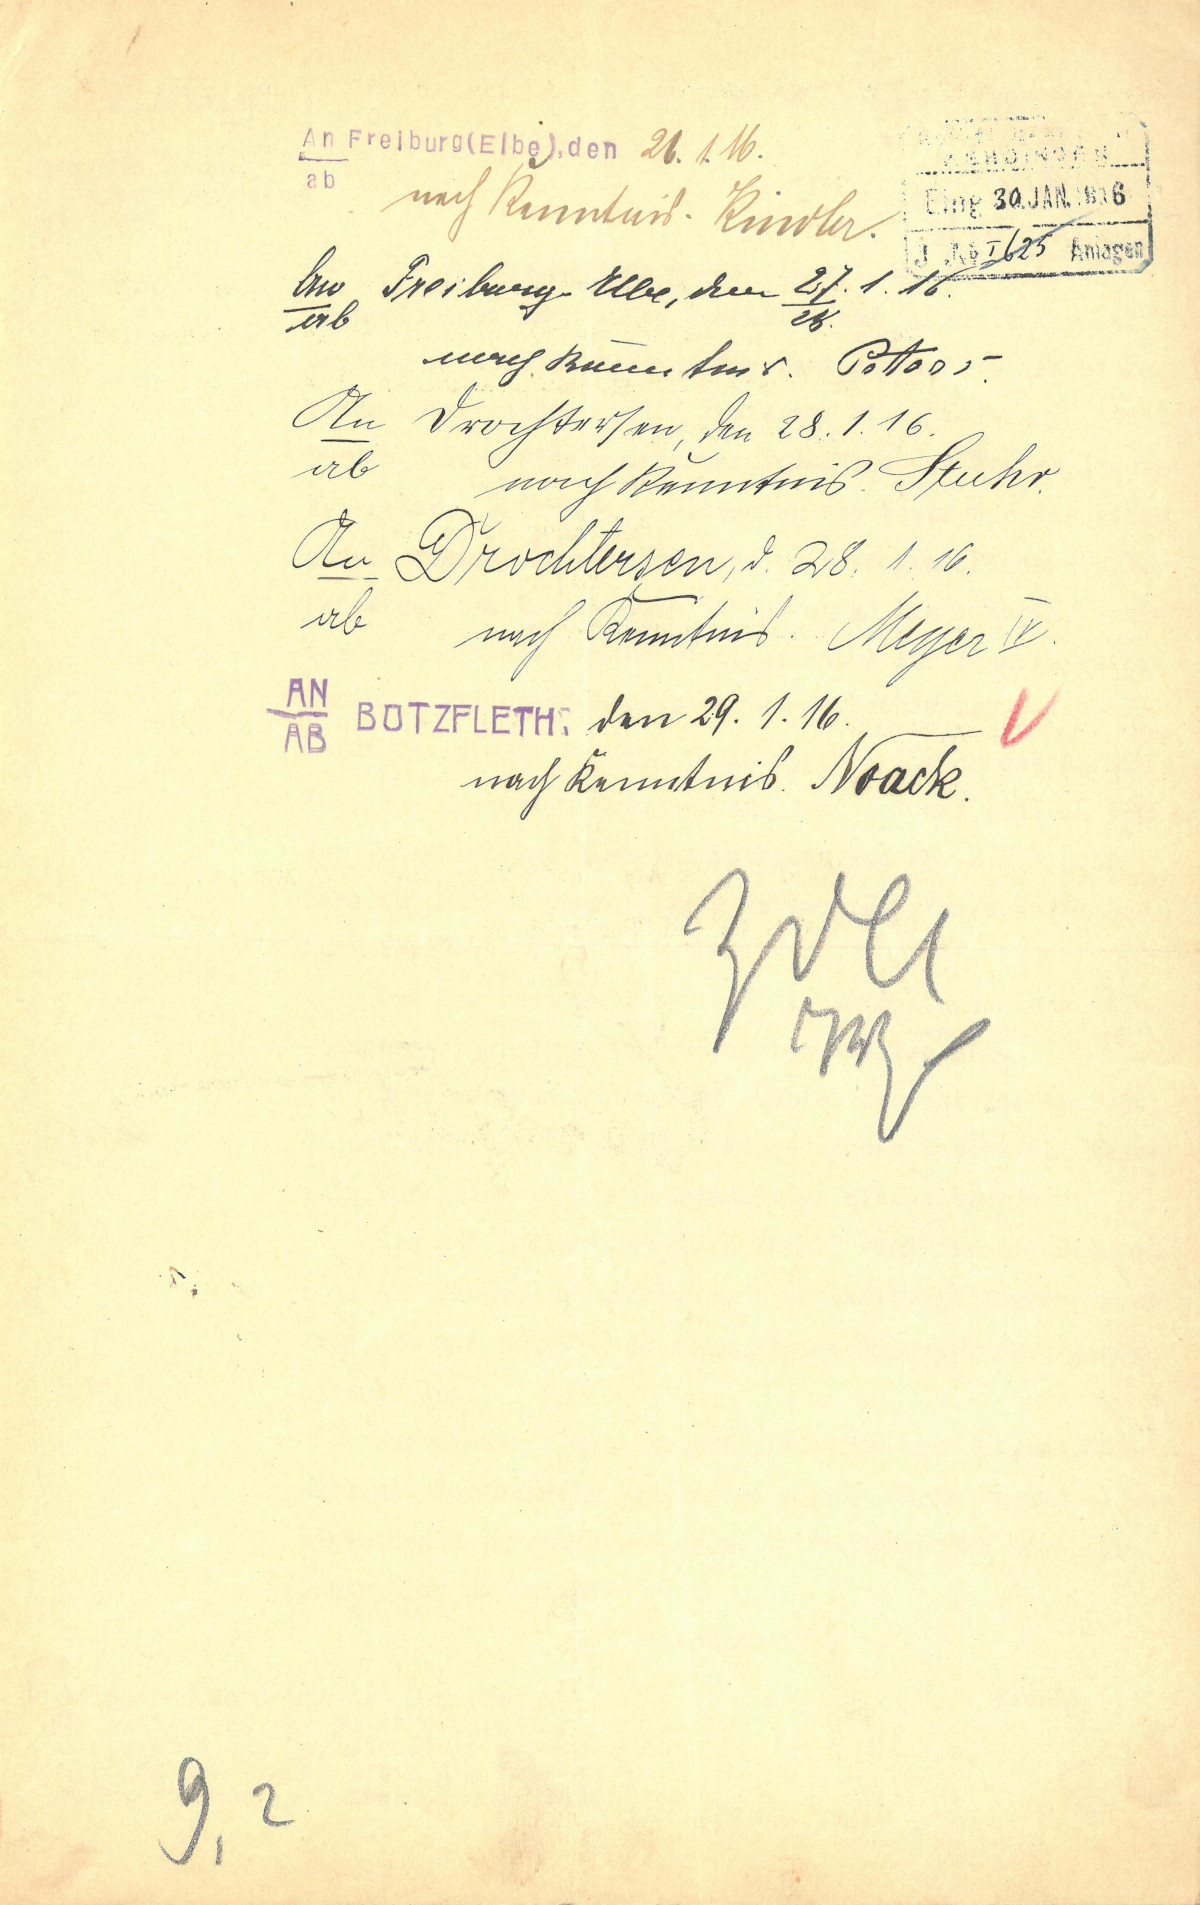 An Freiburg(Elbe), den 26. 1. 16.
ab
nach Kenntnis. Kindler.
KEHDINGEN
Eing 30. JAN. 1916
J. No I 625 Anlagen
An Freiburg Elbe, den 27. 1. 16.
ab 28.
nach Kenntnis.
An Drochtersen, den 28. 1. 16.
ab nach Kenntnis. Stuhr.
An Drochtersen, d. 28. 1. 16.
ab nach Kenntnis. Meyer IV.
AN BÜTZFLETH: den 29. 1. 16.
AB
nach Kenntnis. Noack.
9, 2